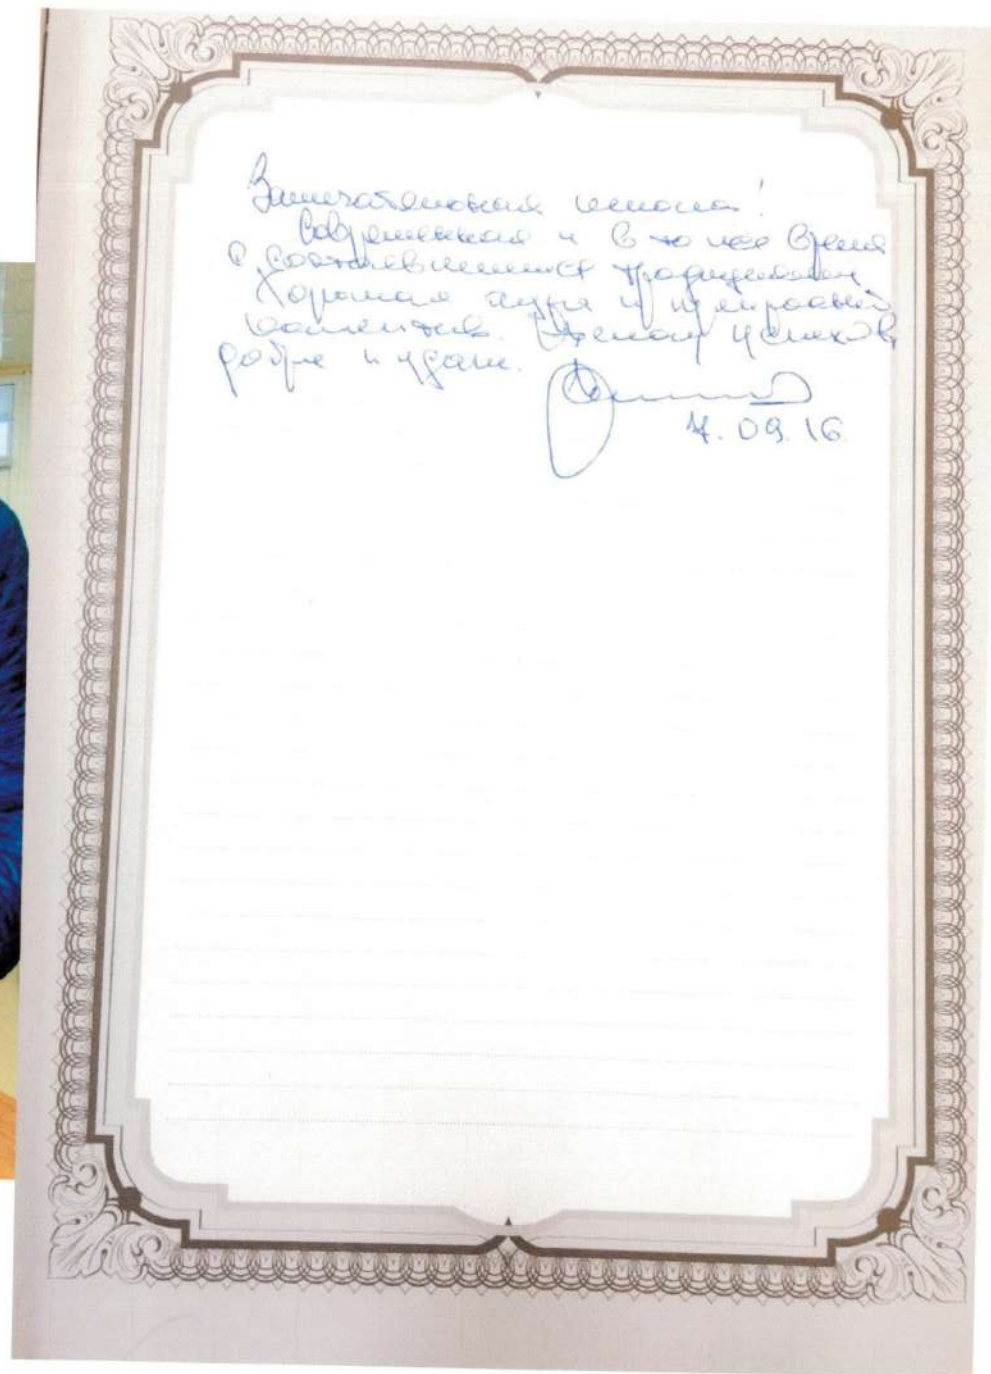 Замечательная школа!
Современная и в то же время
с состоявшимися традициями
Хорошая аура и прекрасный
коллектив. Желаю успехов,
добра и удачи.
09.16